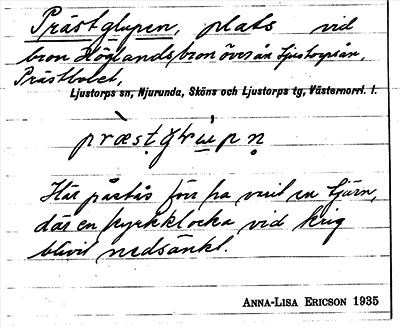 Prästglupen, plats vid
bron Höglandsbron över ån Ljustorpsån,
Prästbolet,
Ljustorps sn, Njurunda, Sköns och Ljustorps tg, Västernorrl. l.
Här påstås förr ha varit en tjärn,
där en kyrkklocka vid krig
blivit nedsänkt.
ANNA-LISA ERICSON 1935